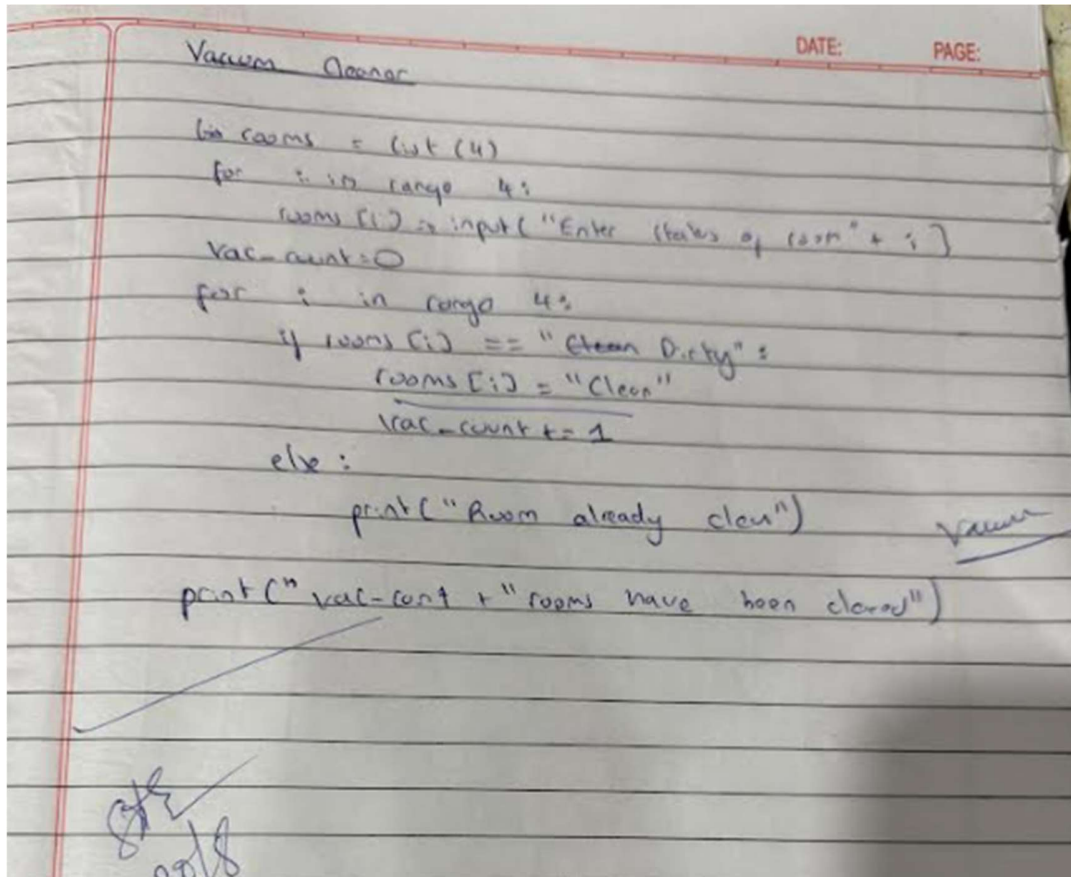 DATE: PAGE:
Vacuum Cleaner
rooms = list (4)
for i in range 4:
rooms [i] = input ("Enter status of room" + i)
vac_count = 0
for i in range 4:
if rooms [i] == "Dirty" :
rooms [i] = "Clean"
vac_count += 1
else :
print ("Room already clean")
Vacuum
print (" vac-count + " rooms have been cleaned")